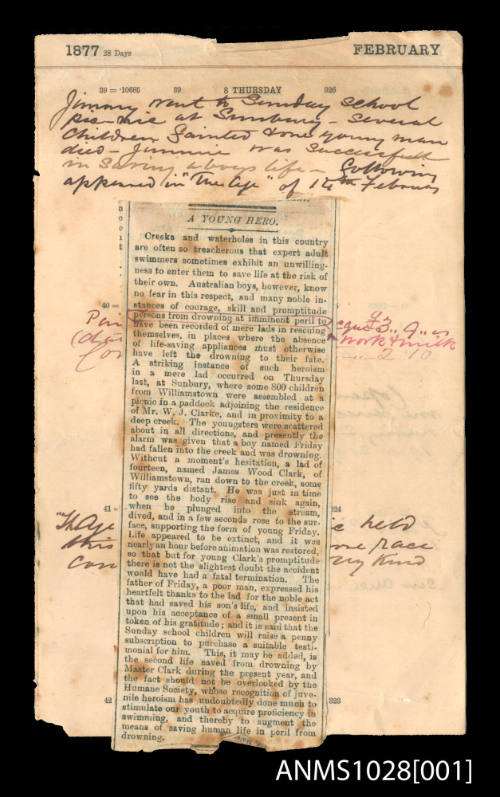 1877 28 Days FEBRUARY
39 = 10685 39 8 THURSDAY 326
Jimmy went to Sunday school
pic-nic at Sunbury - several
children fainted & one young man
died - Jimmie was successful
in saving a boys life - following
appeared in "The Age" of 14th February
A YOUNG HERO.
Creeks and waterholes in this country
are often so treacherous that expert adult
swimmers sometimes exhibit an unwilling-
ness to enter them to save life at the risk of
their own. Australian boys, however, know
no fear in this respect, and many noble in-
stances of courage, skill and promptitude
persons from drowning at imminent peril to
have been recorded of mere lads in rescuing
themselves, in places where the absence
of life-saving appliances must otherwise
have left the drowning to their fate.
A striking instance of such heroism
in a mere lad occurred on Thursday
last, at Sunbury, where some 800 children
from Williamstown were assembled at a
picnic in a paddock adjoining the residence
of Mr. W. J. Clarke, and in proximity to a
deep creek. The youngsters were scattered
about in all directions, and presently the
alarm was given that a boy named Friday
had fallen into the creek and was drowning.
Without a moment's hesitation, a lad of
fourteen, named James Wood Clark, of
Williamstown, ran down to the creek, some
fifty yards distant. He was just in time
to see the body rise and sink again,
when he plunged into the stream,
dived, and in a few seconds rose to the sur-
face, supporting the form of young Friday.
Life appeared to be extinct, and it was
nearly an hour before animation was restored,
so that but for young Clark's promptitude
there is not the slightest doubt the accident
would have had a fatal termination. The
father of Friday, a poor man, expressed his
heartfelt thanks to the lad for the noble act
that had saved his son's life, and insisted
upon his acceptance of a small present in
token of his gratitude; and it is said that the
Sunday school children will raise a penny
subscription to purchase a suitable testi-
monial for him. This, it may be added, is
the second life saved from drowning by
Master Clark during the present year, and
the fact should not be overlooked by the
Humane Society, whose recognition of juve-
nile heroism has undoubtedly done much to
stimulate our youth to acquire proficiency in
swimming, and thereby to augment the
means of saving human life in peril from
drowning.
40
work & milk
2 10
41 324
"The Age held
this race
con my kind
42 323
ANMS1028[001]